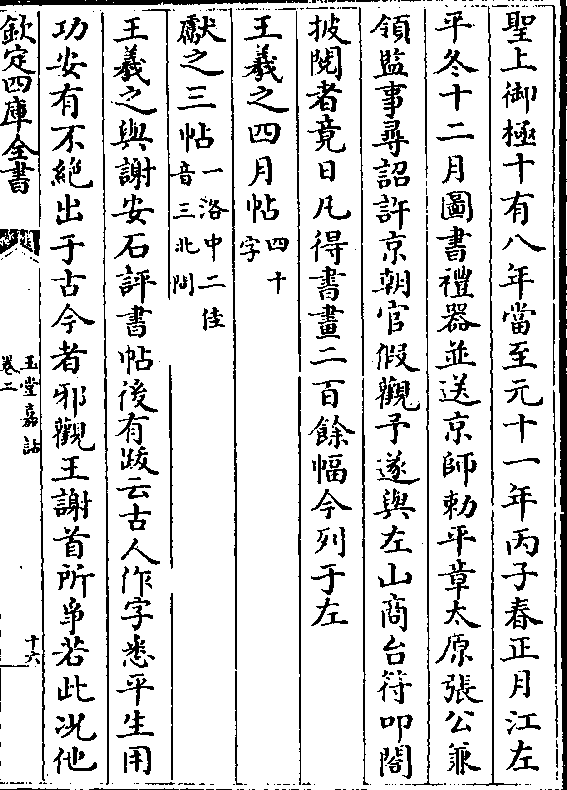 聖上御極十有八年當至元十一年丙子春正月江左
平冬十二月圖書禮器並送京師勅平章太原張公兼
領監事尋詔許京朝官假觀予遂與左山商台符叩閣
披閱者竟日凡得書畫二百餘幅今列于左
王羲之四月帖四十字
獻之三帖一洛中二佳音三北問
王羲之與謝安石評書帖後有跋云古人作字悉平生用
功安有不絶出于古今者邪觀王謝首所帋若此况他
欽定四庫全書
玉堂嘉話
卷二
十六